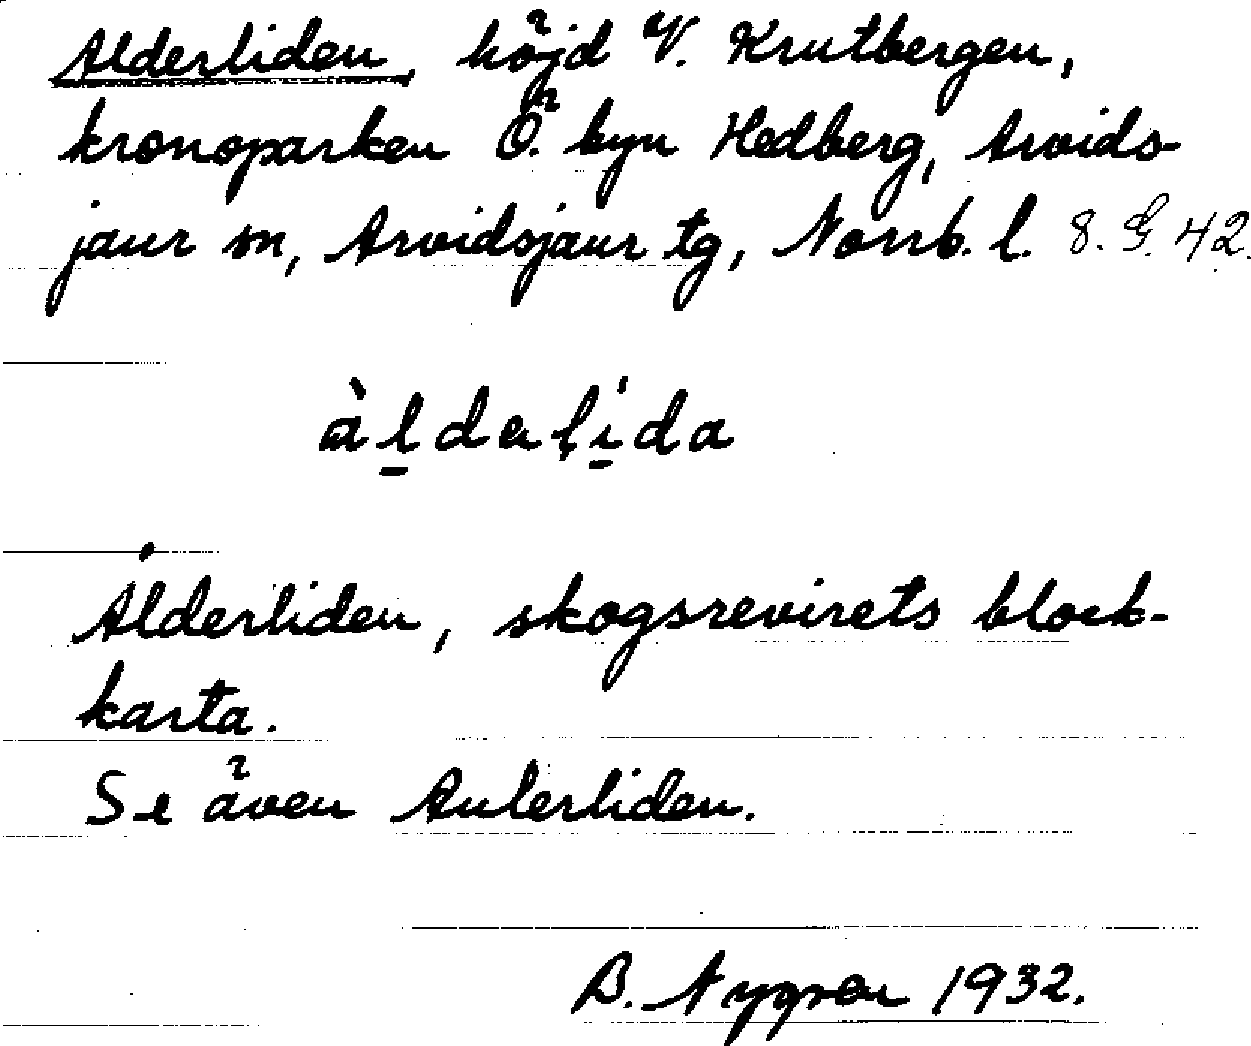 Alderliden, höjd V. Krutbergen,
kronoparken Ö. byn Hedberg, Arvids-
jaur sn, Arvidsjaur tg, Norrb. l. 8. G. 42.
àldalída
Ålderliden, skogsrevirets block-
karta.
Se även Aulerliden.
B. Nygren 1932.